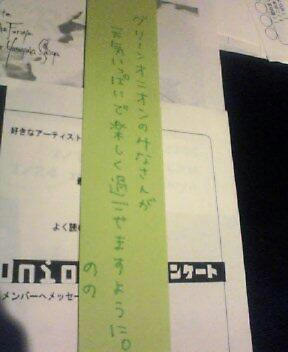 グリーンオニオンのみなさんが
元気いっぱいで楽しく過ごせますように。
のの
好きなアーティスト
よく読
nio
ンケート
メンバーへメッセー